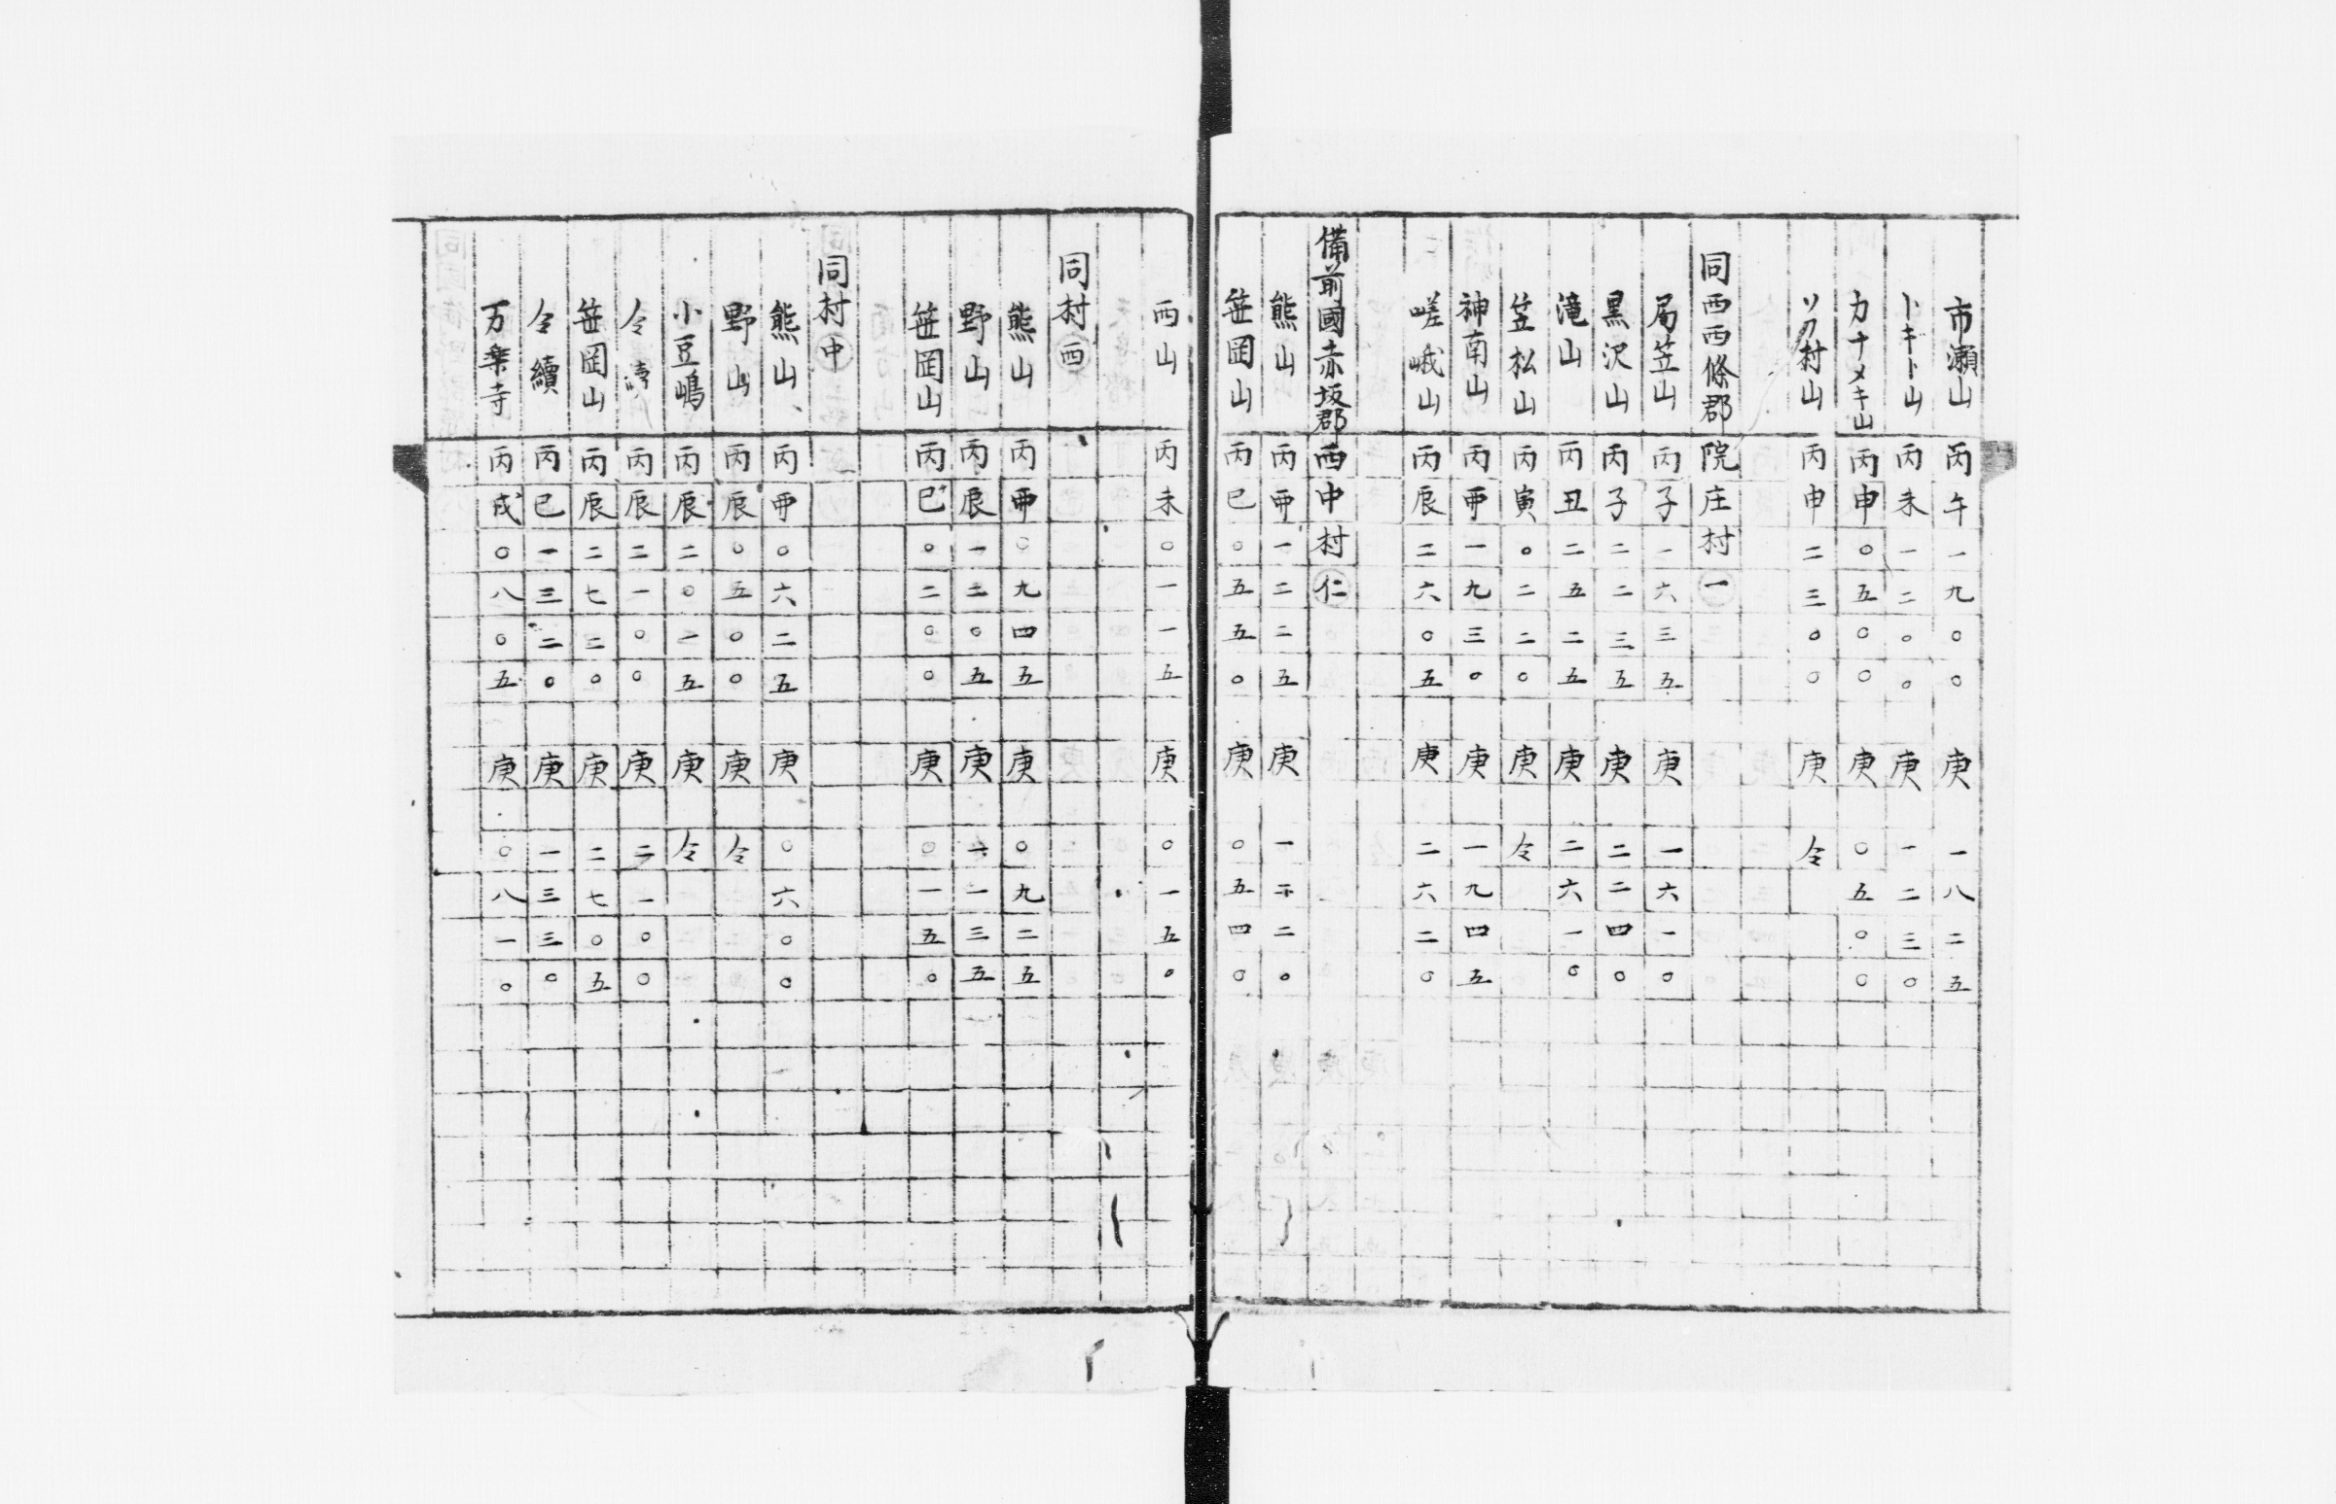 市瀬山 丙午一九〇〇 庚 一八二五
トキト山 丙未一二〇〇 庚 一二三〇
カナメキ山 丙申〇五〇〇 庚 〇五〇〇
村山 丙申二三〇〇 庚 仝
同西西條郡院庄村㊀
局笠山 丙子一六三五 庚 一六一〇
黒沢山 丙子二二三五 庚 二二四〇
滝山 丙丑二五二五 庚 二六一〇
笠松山 丙寅〇二二〇 庚 仝
神南山 丙酉一九三〇 庚 一九四五
嵯峨山 丙辰二六〇五 庚 二六二〇
備前國赤坂郡西中村仁
熊山 丙酉一二二五 庚 一二二〇
笹岡山 丙巳〇五五〇 庚 〇五四〇
西山 丙未〇一一五 庚 〇一五〇
同村西
熊山 丙酉〇九四五 庚 〇九二五
野山 丙辰一二〇五 庚 一三五
笹岡山 丙巳〇二〇〇 庚 〇一五〇
同村㊥
熊山 丙酉〇六二五 庚 〇六〇〇
野山 丙辰〇五〇〇 庚 仝
小豆嶋 丙辰二〇一五 庚 仝
仝續 丙辰二一〇〇 庚 二一〇〇
笹岡山 丙辰二七二〇 庚 二七〇五
仝續 丙巳一三二〇 庚 一三三〇
万樂寺 丙戌〇八〇五 庚 〇八一〇